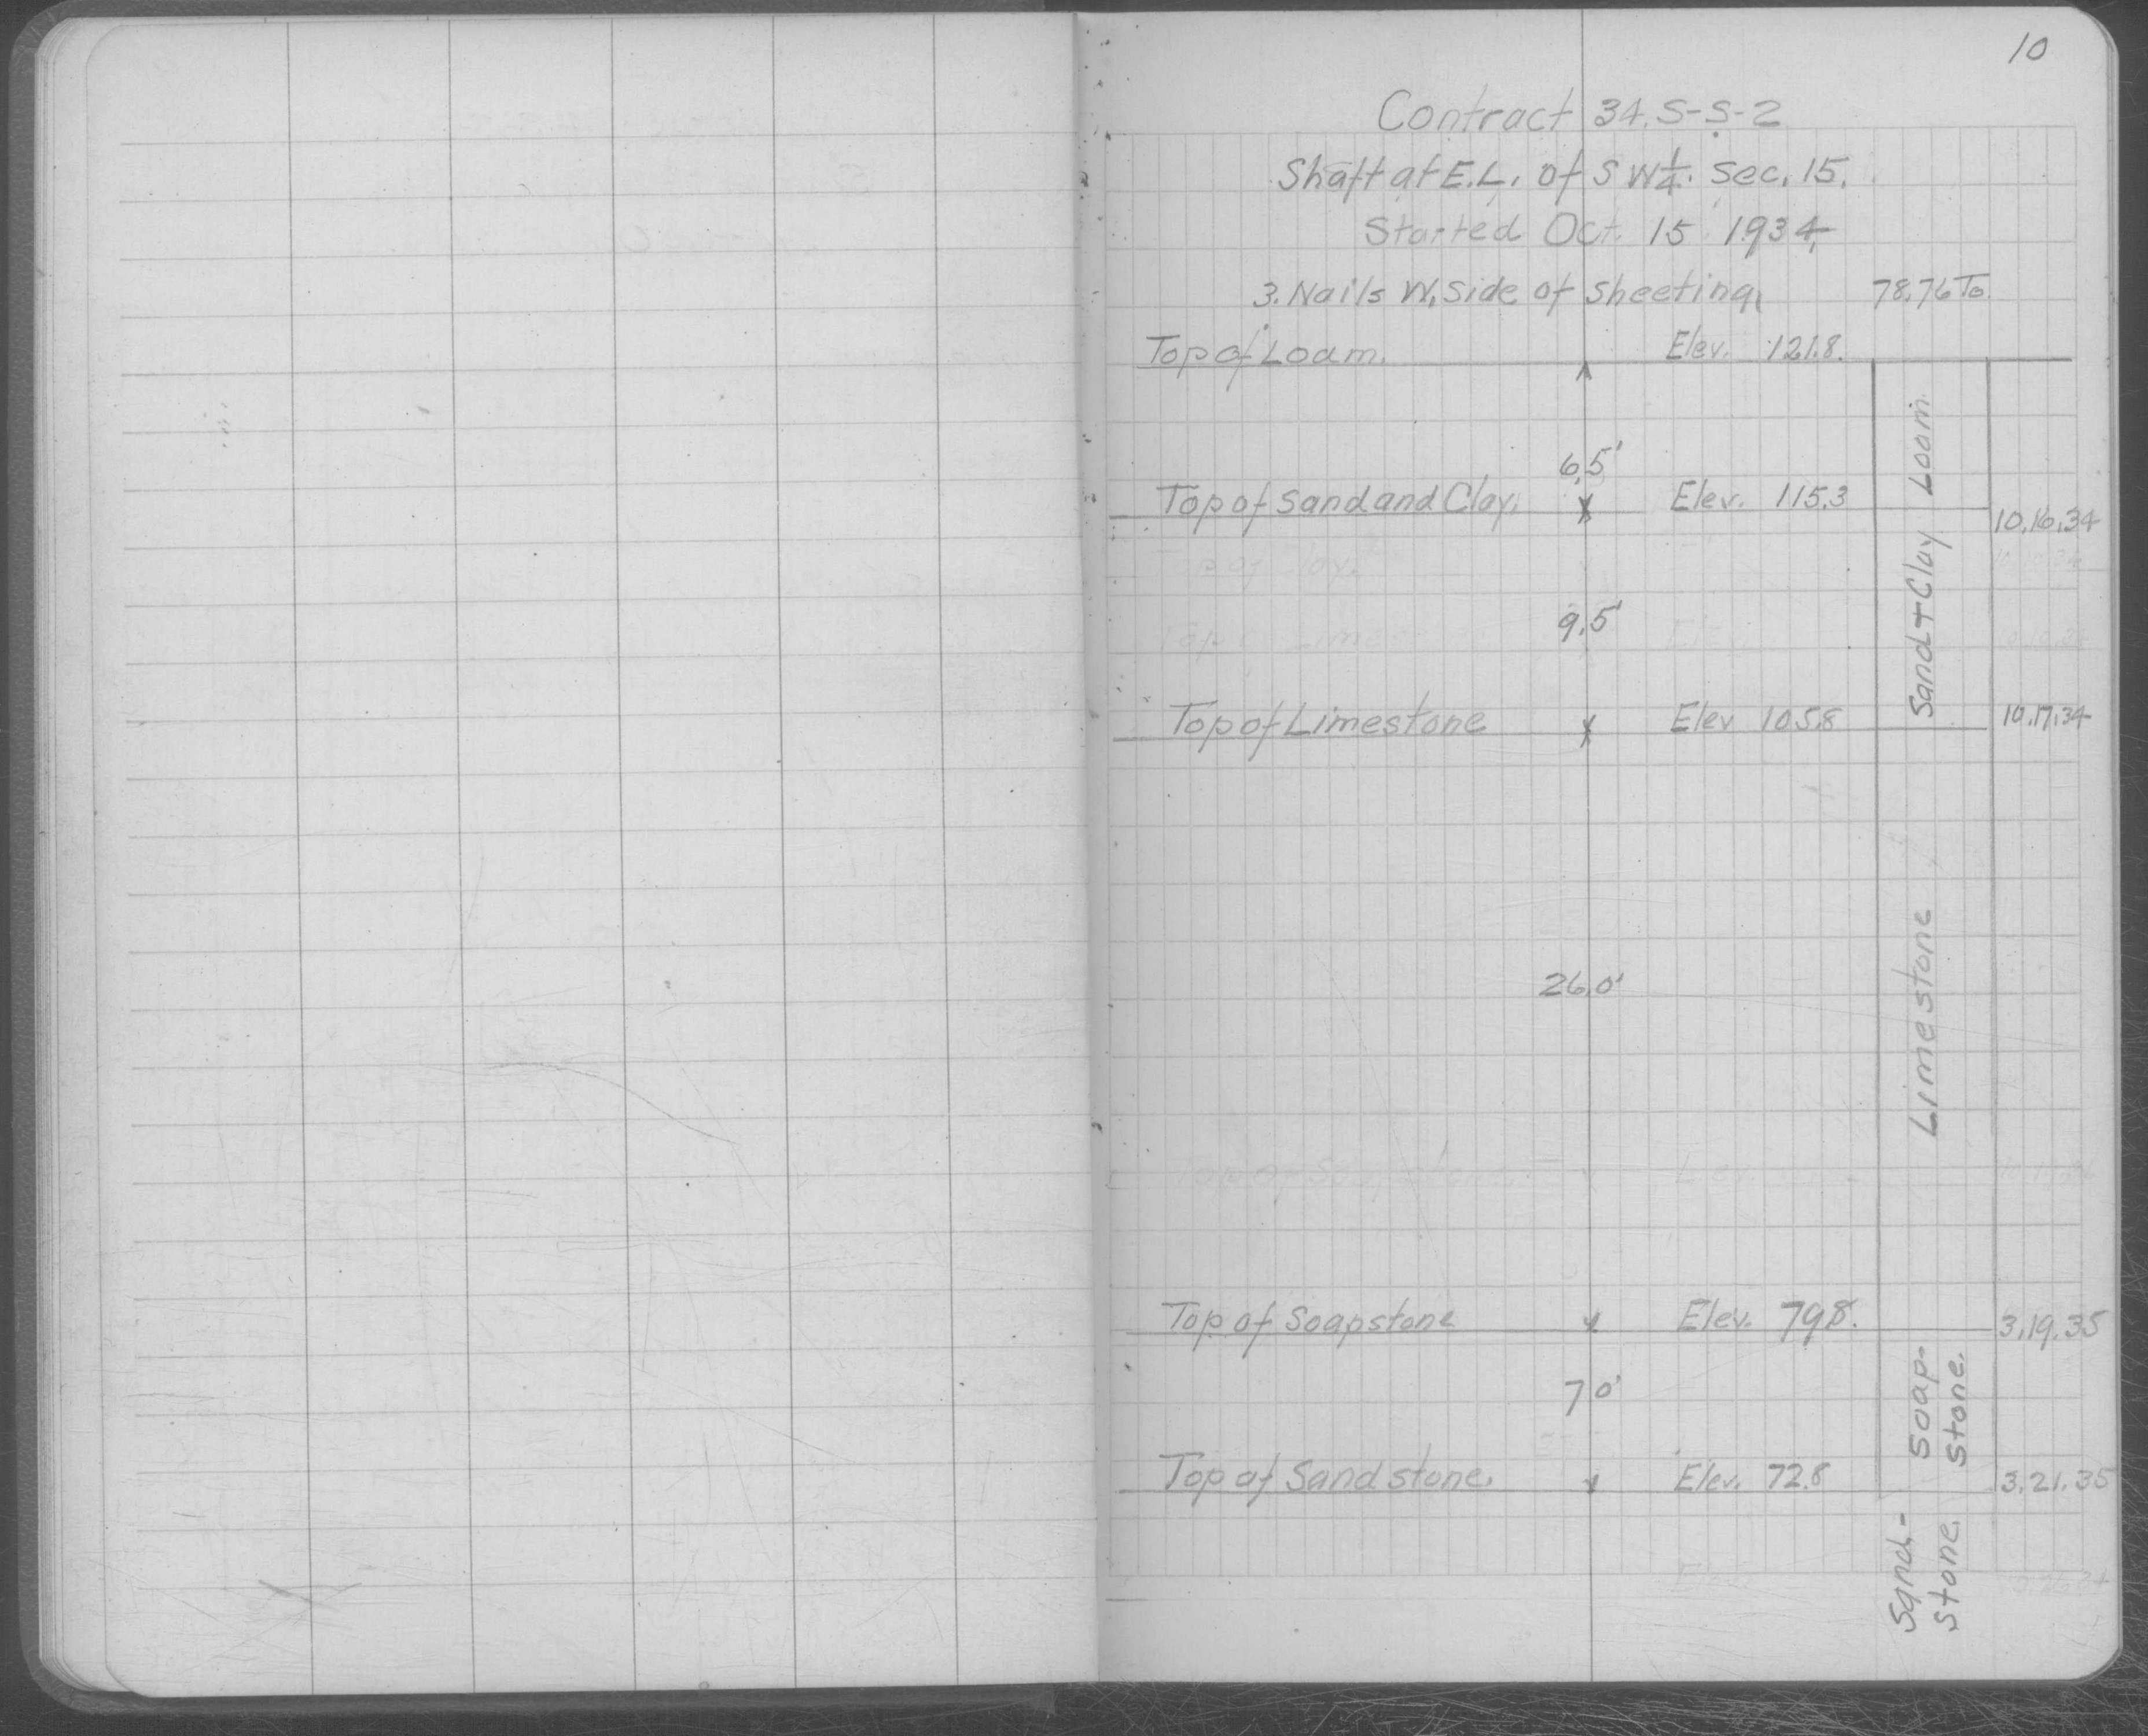 10
Contract 34.S-S-2
Shaft at E.L. of SW 1/4. Sec. 15.
Started Oct. 15 1934
3. Nails W. Side of Sheeting 78.76 To.
Top of Loam. Elev. 121.8.
Loam.
6.5'
Top of Sand and Clay. Elev. 115.3
10.16.34
Top of Clay.
Sand + Clay
9.5'
Top Limes Elev.
Top of Limestone Elev 105.8 10.17.34
Limestone
26.0'
Top of Soapstone Elev.
Top of Soapstone Elev. 79.8. 3.19.35
Soap-
stone.
7.0'
Top of Sandstone. Elev. 72.8 3.21.35
Sand-
stone.
Elev.